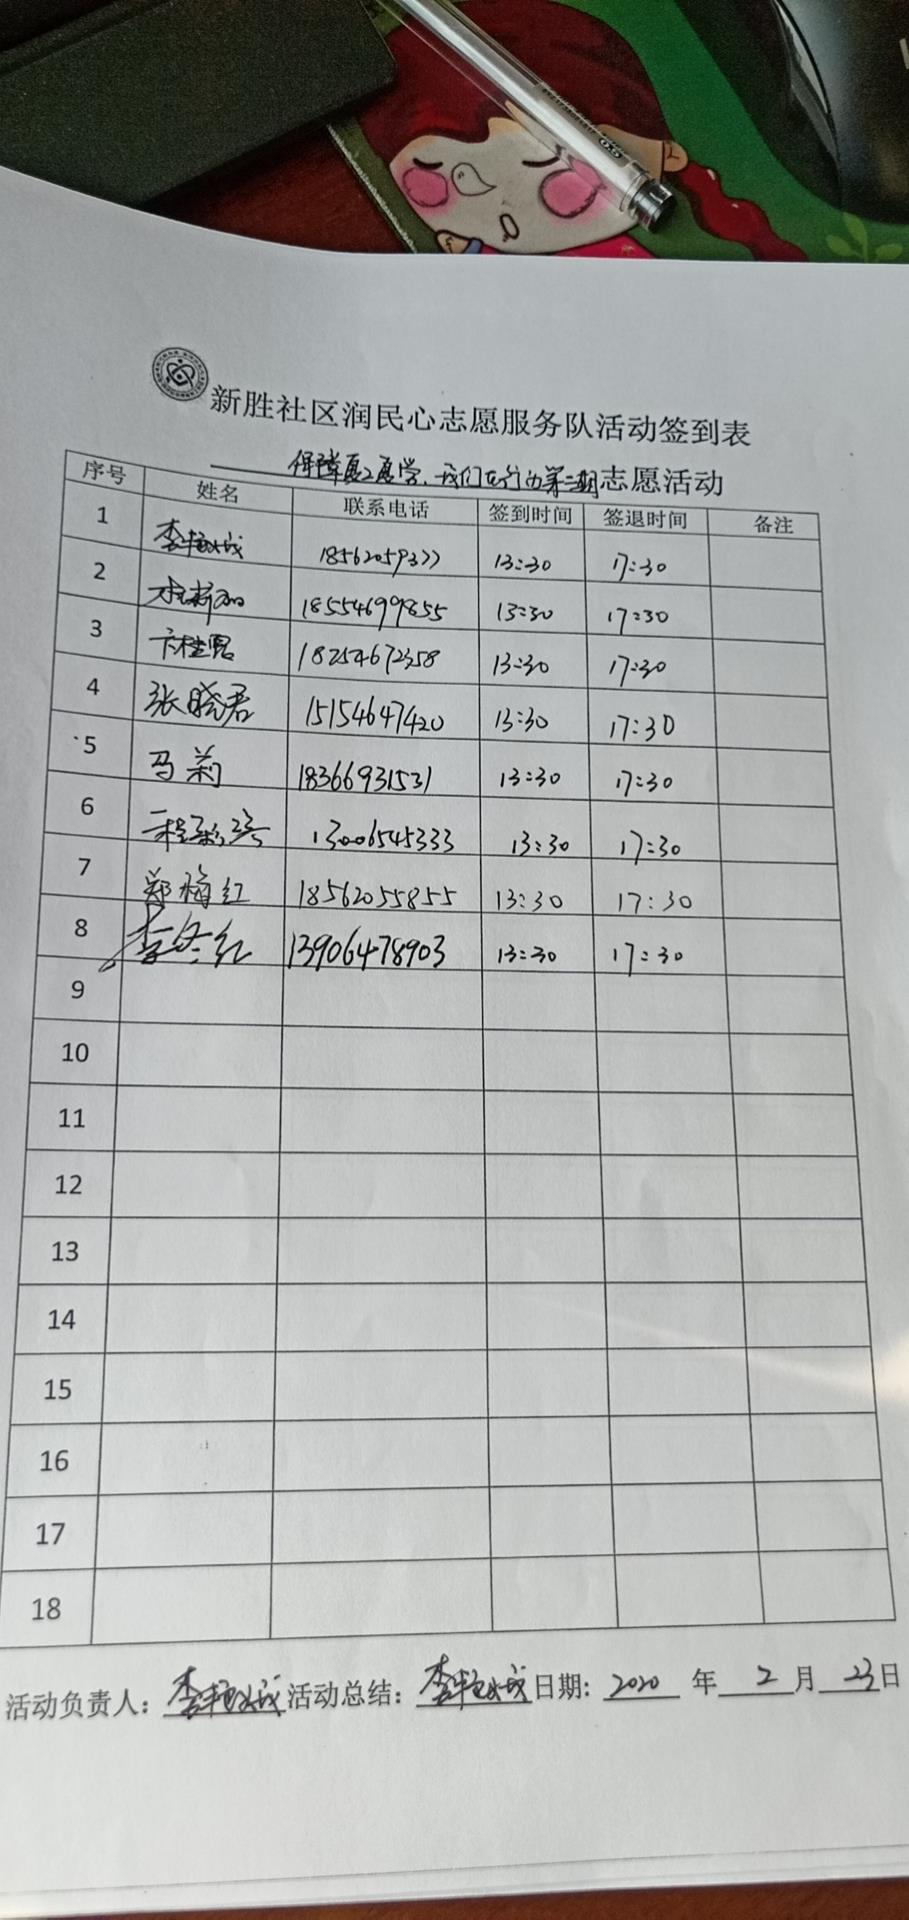 新胜社区润民心志愿服务队活动签到表
保障复工复学,我们在行动第二期志愿活动
序号 姓名 联系电话 签到时间 签退时间 备注
1 李艳城 18562059377 13:30 17:30
2 18554699855 13:30 17:30
3 18254672358 13:30 17:30
4 张晓君 15154647420 13:30 17:30
5 马莉 18366931531 13:30 17:30
6 13006545333 13:30 17:30
7 郑梅红 18562055855 13:30 17:30
8 李冬红 13906478903 13:30 17:30
9
10
11
12
13
14
15
16
17
18
活动负责人:李艳城活动总结:李艳城日期:2020年2月23日